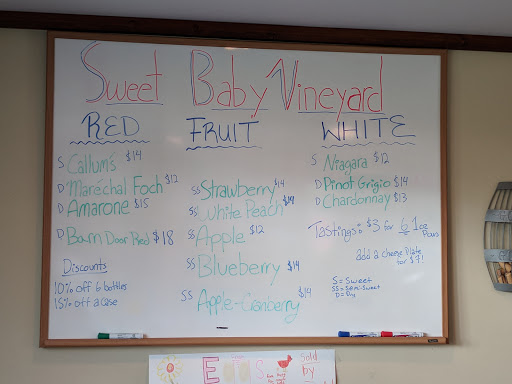 Sweet Baby Vineyard
RED
S Callum's $14
D Maréchal Foch $12
D Amarone $15
D Barn Door Red $18
Discounts
10% off 6 bottles
15% off a case
FRUIT
SS Strawberry $14
SS White Peach $14
SS Apple $12
SS Blueberry $14
SS Apple-Cranberry $14
WHITE
S Niagara $12
D Pinot Grigio $14
D Chardonnay $13
Tastings: $3 for 6 1oz
Pours
add a cheese plate
for $7!
S = Sweet
SS = Semi-Sweet
D = Dry
Sold
by